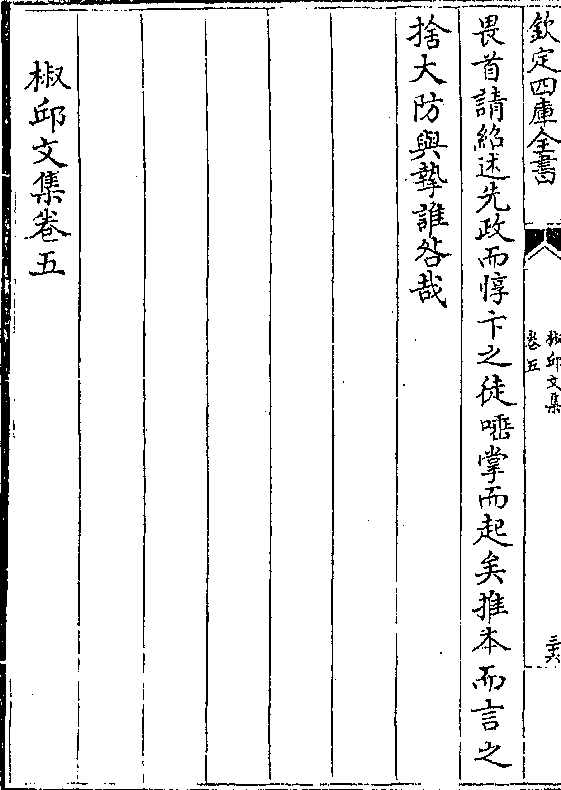 欽定四庫全書
椒邱文集
卷五
三六
畏首請紹述先政而惇卞之徒唾掌而起矣推本而言之
捨大防與摯誰咎哉
椒邱文集卷五